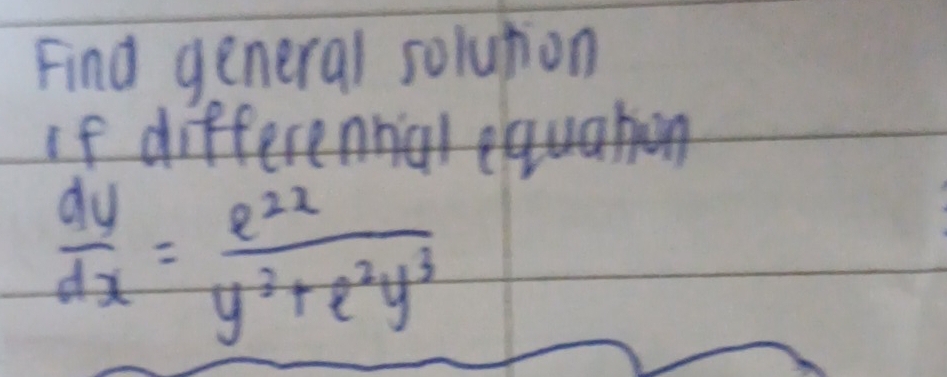 Find general solution
if differential equation
dy/dx = e^{2x}/(y^3+e^xy^3)